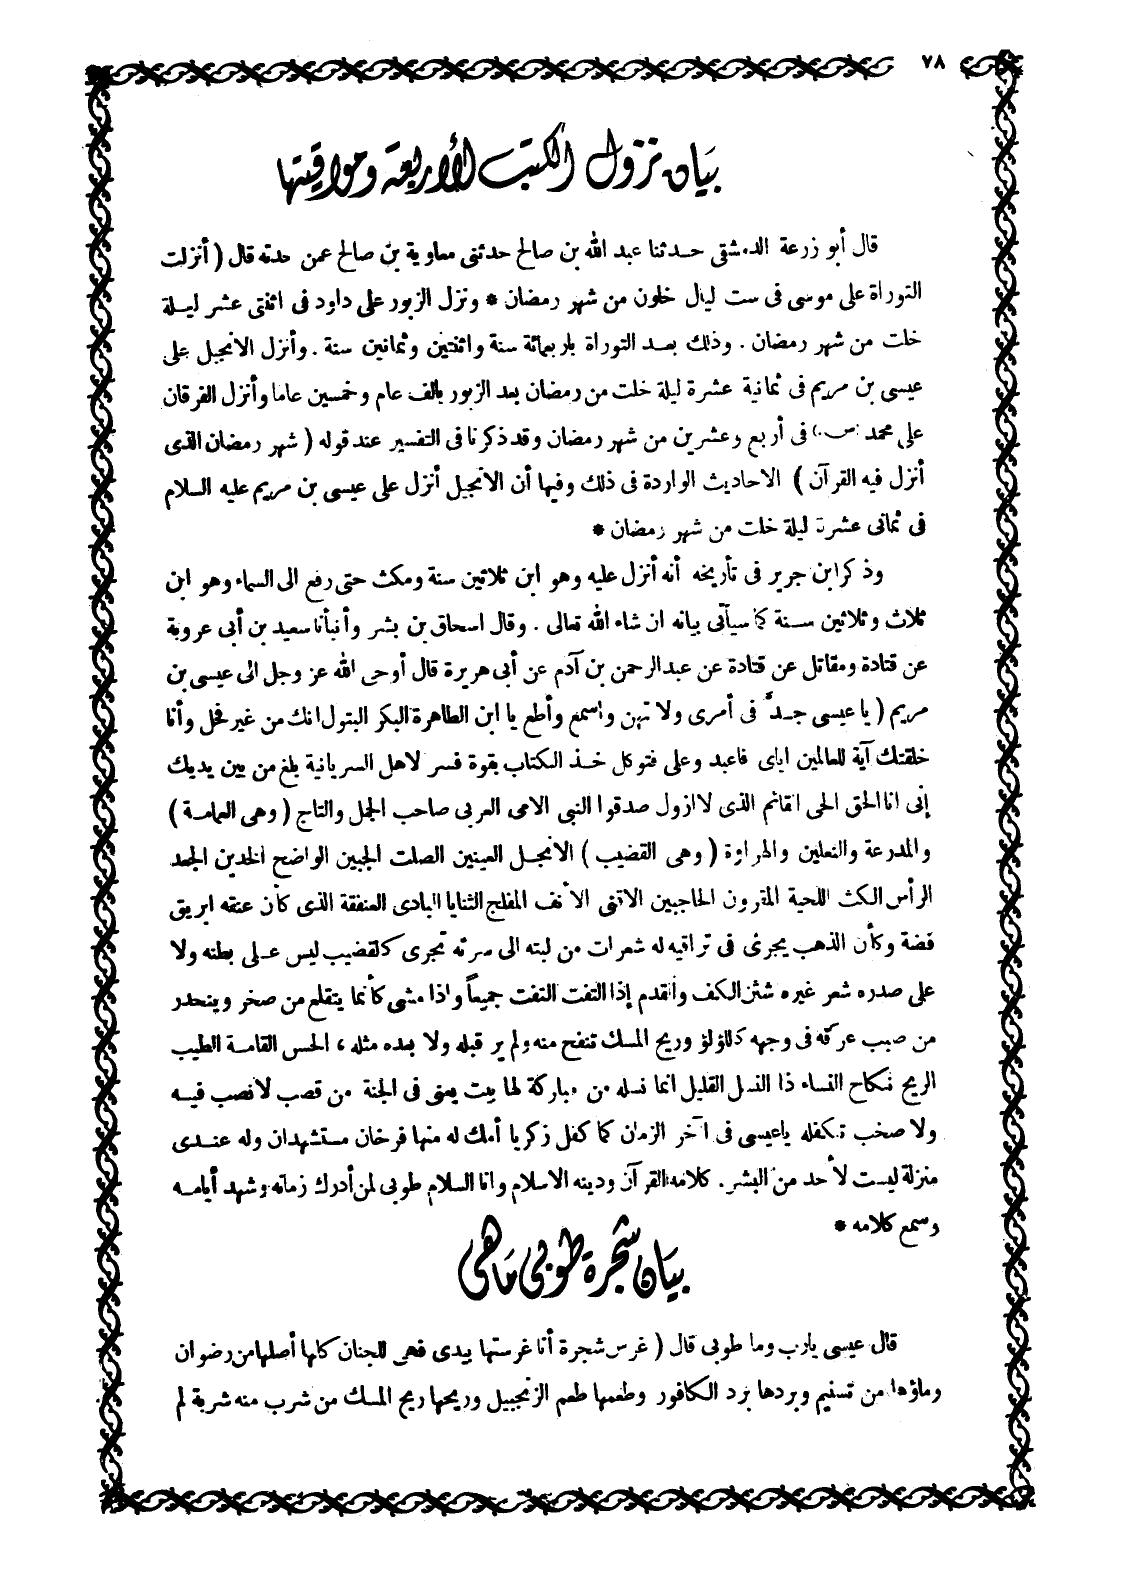 ٧٨
بيان نزول الكتب الأربعة ومواقيتها
قال أبو زرعة الدمشقى حدثنا عبد الله بن صالح حدثنى معاوية بن صالح عمن حدثه قال ( أنزلت
التوراة على موسى فى ست ليال خلون من شهر رمضان * ونزل الزبور على داود فى اثنتى عشر ليلة
خلت من شهر رمضان . وذلك بعد التوراة باربعمائة سنة واثنتين وثمانين سنة . وأنزل الانجيل على
عيسى بن مريم فى ثمانية عشرة ليلة خلت من رمضان بعد الزبور بالف عام وخمسين عاما وأنزل الفرقان
على محمد (ص) فى أربع وعشرين من شهر رمضان وقد ذكرنا فى التفسير عند قوله ( شهر رمضان الذى
أنزل فيه القرآن ) الاحاديث الواردة فى ذلك وفيها أن الانجيل أنزل على عيسى بن مريم عليه السلام
فى ثمانى عشرة ليلة خلت من شهر رمضان *
وذكر ابن جرير فى تأريخه أنه أنزل عليه وهو ابن ثلاثين سنة ومكث حتى رفع الى السماء وهو ابن
ثلاث وثلاثين سنة كما سيأتى بيانه ان شاء الله تعالى . وقال اسحاق بن بشر وأنبأنا سعيد بن أبى عروبة
عن قتادة ومقاتل عن قتادة عن عبد الرحمن بن آدم عن أبى هريرة قال أوحى الله عز وجل الى عيسى بن
مريم ( يا عيسى جد فى أمرى ولا تهن واسمع وأطع يا ابن الطاهرة البكر البتول انك من غير فحل وأنا
خلقتك آية للعالمين اياى فاعبد وعلى فتوكل خذ الكتاب بقوة فسر لاهل السريانية بلغ من بين يديك
إنى انا الحق الحى القائم الذى لا ازول صدقوا النبى الامى العربى صاحب الجمل والتاج ( وهى العمامة )
والمدرعة والنعلين والهراوة ( وهى القضيب ) الانجل العينين الصلت الجبين الواضح الخدين الجعد
الرأس الكث اللحية المقرون الحاجبين الاقنى الأنف المفلج الثنايا البادى العنفقة الذى كان عنقه ابريق
فضة وكأن الذهب يجرى فى تراقيه له شعرات من لبته الى سرته تجرى كالقضيب ليس على بطنه ولا
على صدره شعر غيره شثن الكف والقدم إذا التفت التفت جميعاً واذا مشى كأنما يتقلع من صخر وينحدر
من صبب عرقه فى وجهه كاللؤلؤ وريح المسك تنفح منه ولم ير قبله ولا بعده مثله ، الحسن القامة الطيب
الريح نكاح النساء ذا النسل القليل انما نسله من مباركة لها بيت يعنى فى الجنة من قصب لا نصب فيه
ولا صخب تكفله يا عيسى فى آخر الزمان كما كفل زكريا أمك له منها فرخان مستشهدان وله عندى
منزلة ليست لأحد من البشر . كلامه القرآن ودينه الاسلام وانا السلام طوبى لمن أدرك زمانه وشهد أيامه
وسمع كلامه *
بيان شجرة طوبى ما هى
قال عيسى يارب وما طوبى قال ( غرس شجرة أنا غرستها بيدى فهى للجنان كلها أصلها من رضوان
وماؤها من تسنيم وبردها برد الكافور وطعمها طعم الزنجبيل وريحها ريح المسك من شرب منه شربة لم